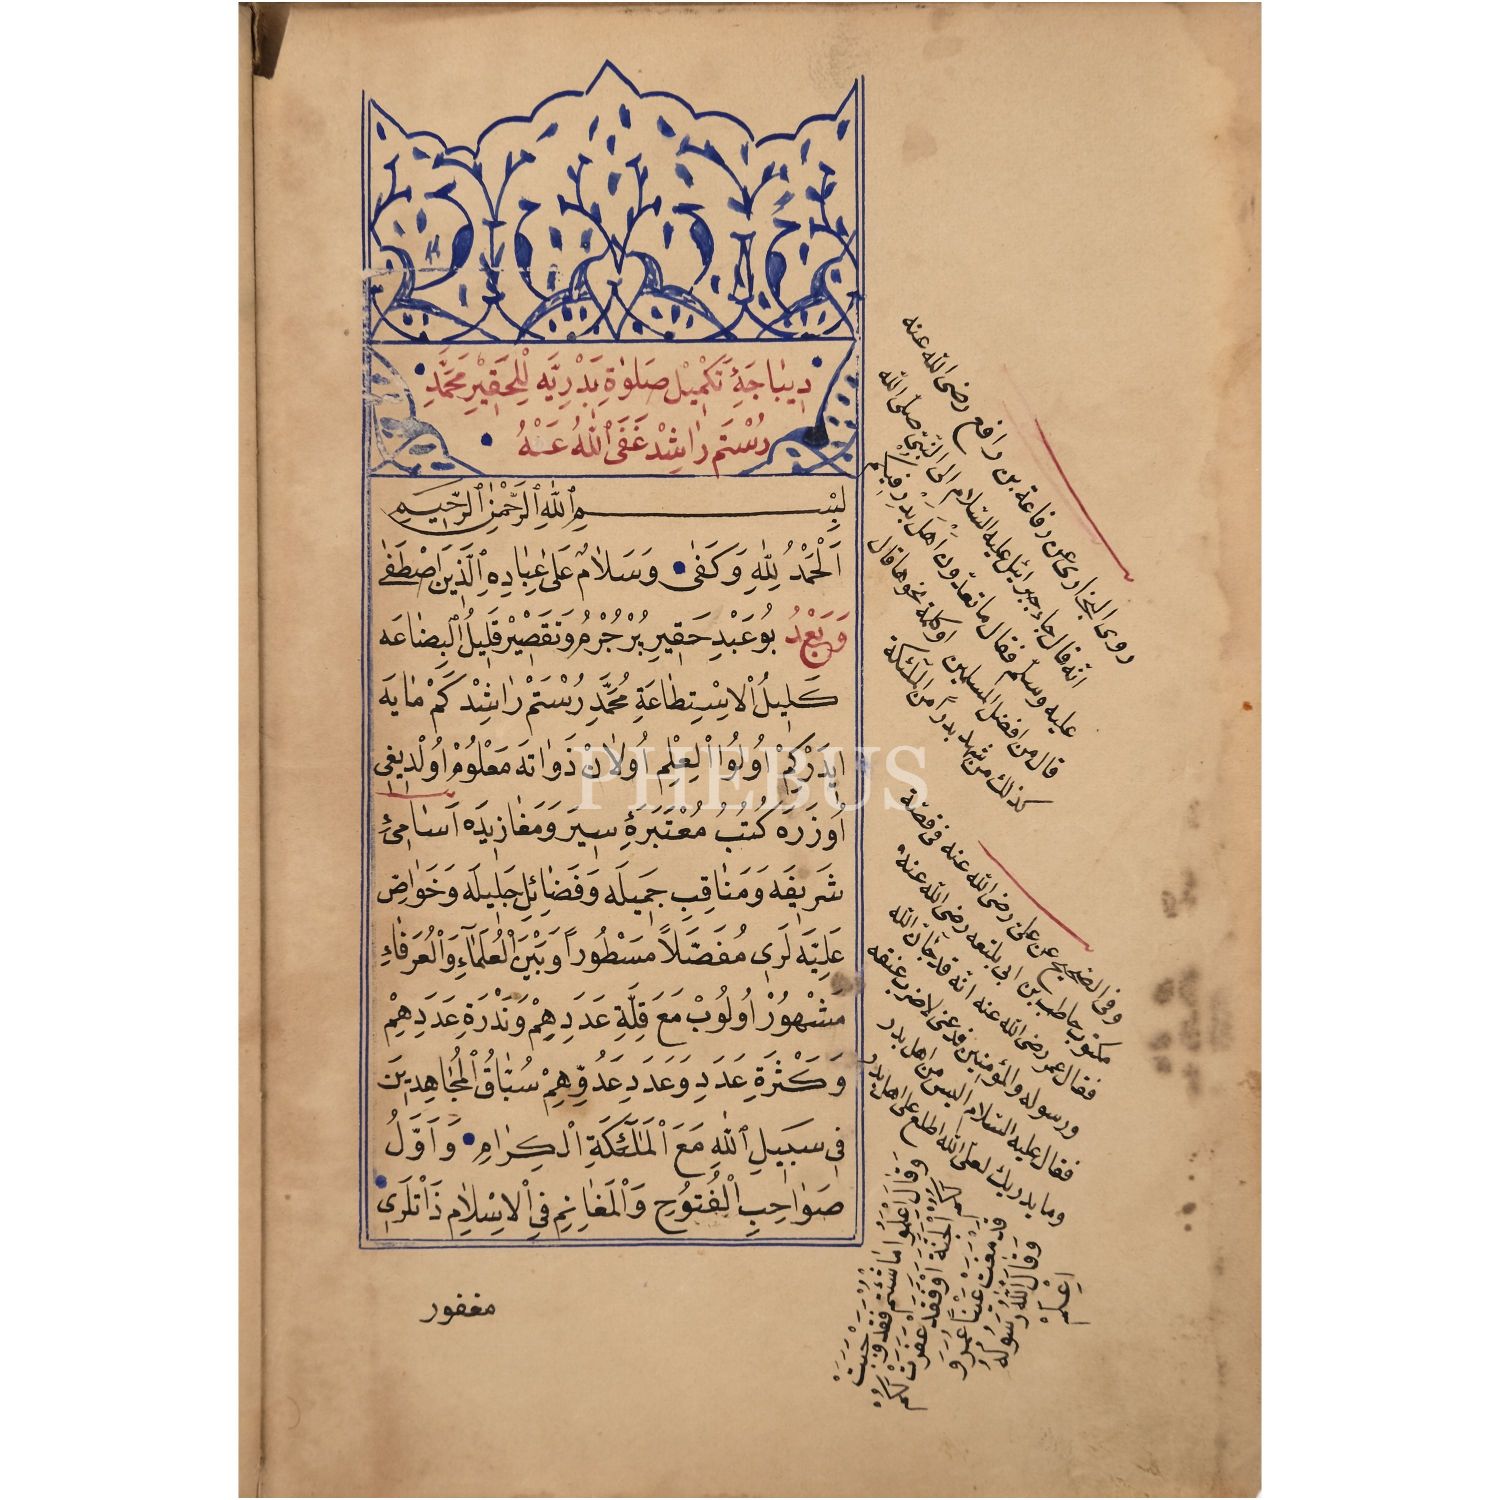 دِيبَاجَهٔ تَكْمِيْلِ صَلٰوةِ بَدْرِيَّه لِلْحَقِيْرِ مُحَمَّدِ
رُسْتَمْ رَاشِدْ عَفَى ٱللّٰهُ عَنْهُ
بِسْمِ ٱللّٰهِ ٱلرَّحْمٰنِ ٱلرَّحِيمِ
اَلْحَمْدُ لِلّٰهِ وَكَفٰى وَسَلَامٌ عَلٰى عِبَادِهِ ٱلَّذِينَ ٱصْطَفٰى
وَبَعْدُ بُو عَبْدِ حَقِيرِ پُرْ جُرْمُ وَتَقْصِيْر قَلِيلُ ٱلْبِضَاعَه
كَلِيلُ ٱلْاِسْتِطَاعَةِ مُحَمَّدِ رُسْتَمْ رَاشِدْ كَمْ مَايَه
ايدَرْكِمْ اُولُوا ٱلْعِلْمِ اُولَانْ ذَوَاتَه مَعْلُومْ اُولْدِيغِى
اُوزَرَه كُتُبُ مُعْتَبَرَهٔ سِيَرَ وَمَغَازِيدَه اَسَامِئ
شَرِيفَه وَمَنَاقِبِ جَمِيلَه وَفَضَائِلِ جَلِيلَه وَخَوَاصِّ
عَلِيَّه لَرِى مُفَصَّلاً مَسْطُوراً وَبَيْنَ ٱلْعُلَمَآءِ وَٱلْعُرَفَاءِ
مَشْهُورْ اُولُوبْ مَعَ قِلَّةِ عَدَدِهِمْ وَنَدْرَةِ عُدَدِهِمْ
وَكَثْرَةِ عَدَدِ وَعُدَدِ عَدُوِّهِمْ سُبَّاقُ ٱلْمُجَاهِدِينَ
فِى سَبِيلِ ٱللّٰهِ مَعَ ٱلْمَلٰٓئِكَةِ ٱلْكِرَامِ وَاَوَّلُ
صَوَاحِبِ ٱلْفُتُوحِ وَٱلْمَغَانِمِ فِى ٱلْاِسْلَامِ ذَاتْلَرِى
مغفور
روى البخارى عن رفاعة بن رافع رضى الله عنه
انه قال جاء جبرائيل عليه السلام الى النبى صلى الله
عليه وسلم فقال ما تعدون اهل بدر فيكم
قال من افضل المسلمين او كلمة نحوها قال
كذلك من شهد بدرا من الملائكة
وفى الصحيح عن على رضى الله عنه فى قصة
مكتوب حاطب بن ابى بلتعه رضى الله عنه
فقال عمر رضى الله عنه انه قد خان الله
ورسوله والمؤمنين فدعنى لاضرب عنقه
فقال عليه السلام اليس من اهل بدر
وما يدريك لعل الله اطلع على اهل بدر
وقال اعملوا ما شئتم فقد وجبت
لكم الجنة او فقد غفرت لكم
فدمعت عينا عمر و
وقال الله ورسوله
اعلم
PHEBUS